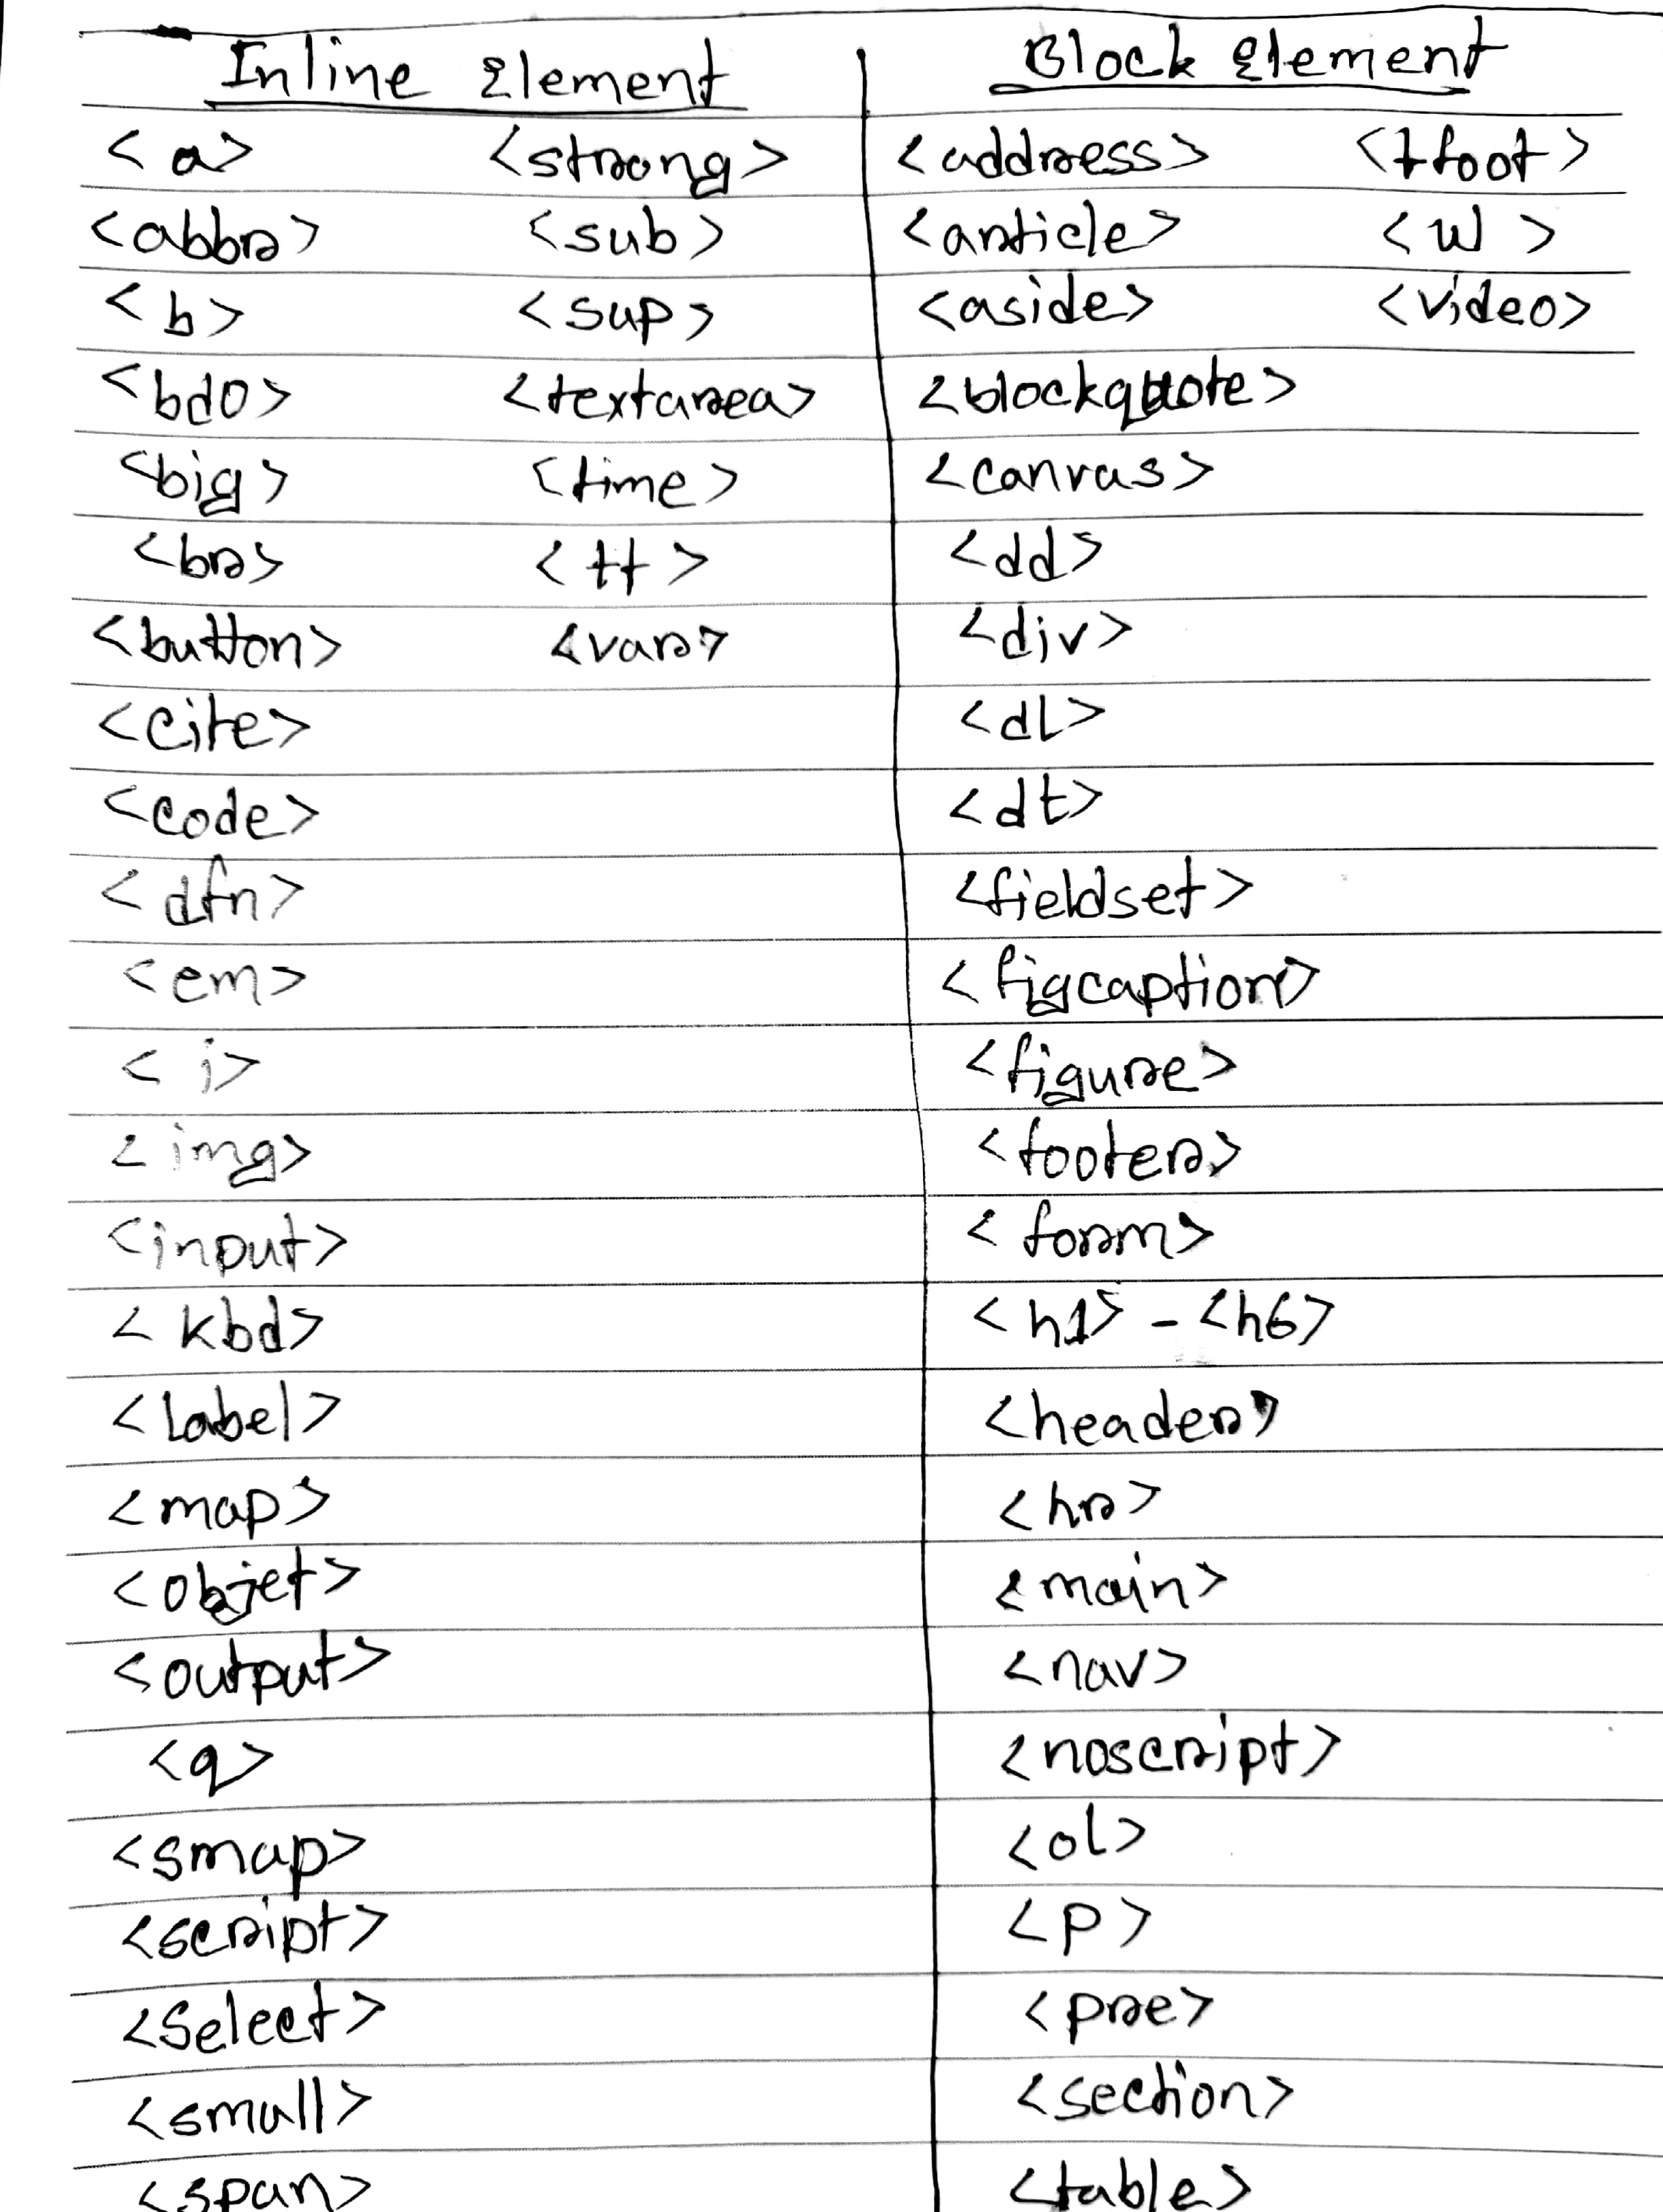 Inline Element Block Element
<a> <strong> <address> <tfoot>
<abbr> <sub> <article> <ul>
<b> <sup> <aside> <video>
<bdo> <textarea> <blockquote>
<big> <time> <canvas>
<br> <tt> <dd>
<button> <var> <div>
<cite> <dl>
<code> <dt>
<dfn> <fieldset>
<em> <figcaption>
<i> <figure>
<img> <footer>
<input> <form>
<kbd> <h1> - <h6>
<label> <header>
<map> <hr>
<objet> <main>
<output> <nav>
<q> <noscript>
<smap> <ol>
<script> <p>
<select> <pre>
<small> <section>
<span> <table>